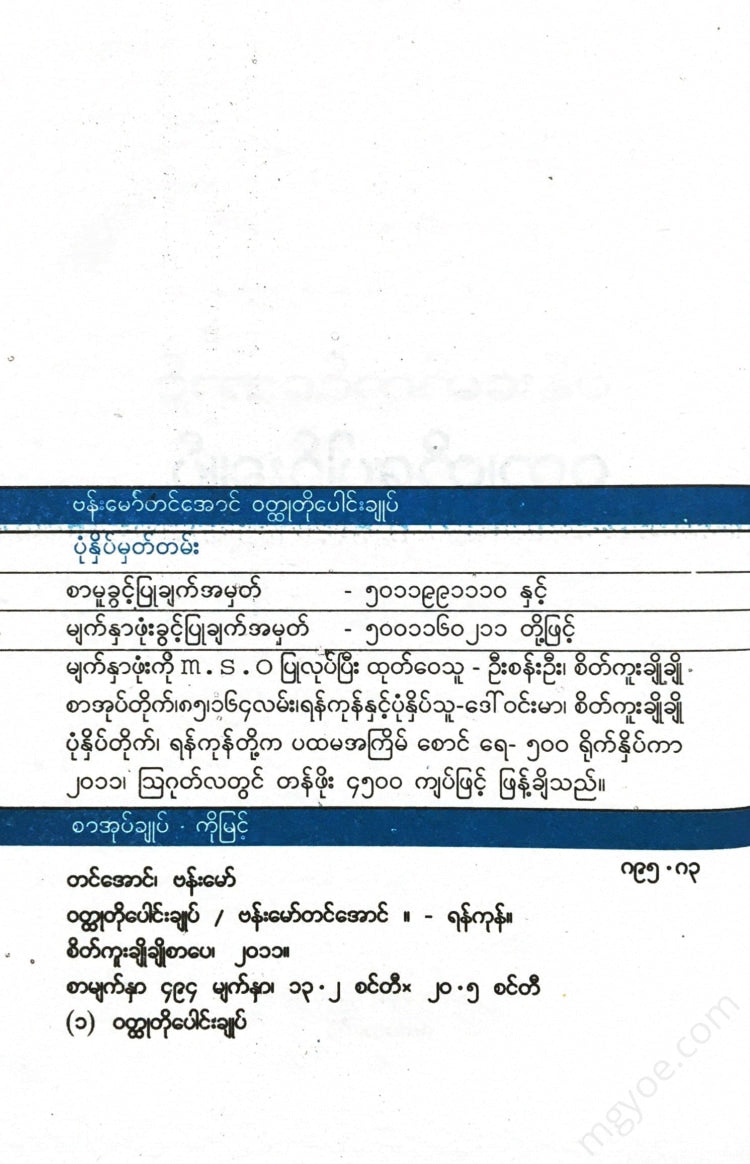 ဗန်းမော်တင်အောင် ဝတ္ထုတိုပေါင်းချုပ်
ပုံနှိပ်မှတ်တမ်း
စာမူခွင့်ပြုချက်အမှတ် - ၅၀၁၁၉၉၁၁၁၀ နှင့်
မျက်နှာဖုံးခွင့်ပြုချက်အမှတ် - ၅၀၀၁၁၆၀၂၁၁ တို့ဖြင့်
မျက်နှာဖုံးကို m . s . o ပြုလုပ်ပြီး ထုတ်ဝေသူ - ဦးစန်းဦး၊ စိတ်ကူးချိုချို
စာအုပ်တိုက်၊၈၅၊၁၆၄လမ်း၊ရန်ကုန်နှင့်ပုံနှိပ်သူ-ဒေါ်ဝင်းမာ၊ စိတ်ကူးချိုချို
ပုံနှိပ်တိုက်၊ ရန်ကုန်တို့က ပထမအကြိမ် စောင် ရေ- ၅၀၀ ရိုက်နှိပ်ကာ
၂၀၁၁၊ ဩဂုတ်လတွင် တန်ဖိုး ၄၅၀၀ ကျပ်ဖြင့် ဖြန့်ချိသည်။
စာအုပ်ချုပ် - ကိုမြင့်
၈၉၅.၈၃
တင်အောင်၊ ဗန်းမော်
ဝတ္ထုတိုပေါင်းချုပ် / ဗန်းမော်တင်အောင် ။ - ရန်ကုန်။
စိတ်ကူးချိုချိုစာပေ၊ ၂၀၁၁။
စာမျက်နှာ ၄၉၄ မျက်နှာ၊ ၁၃.၂ စင်တီ× ၂၀.၅ စင်တီ
(၁) ဝတ္ထုတိုပေါင်းချုပ်
mgyoe.com